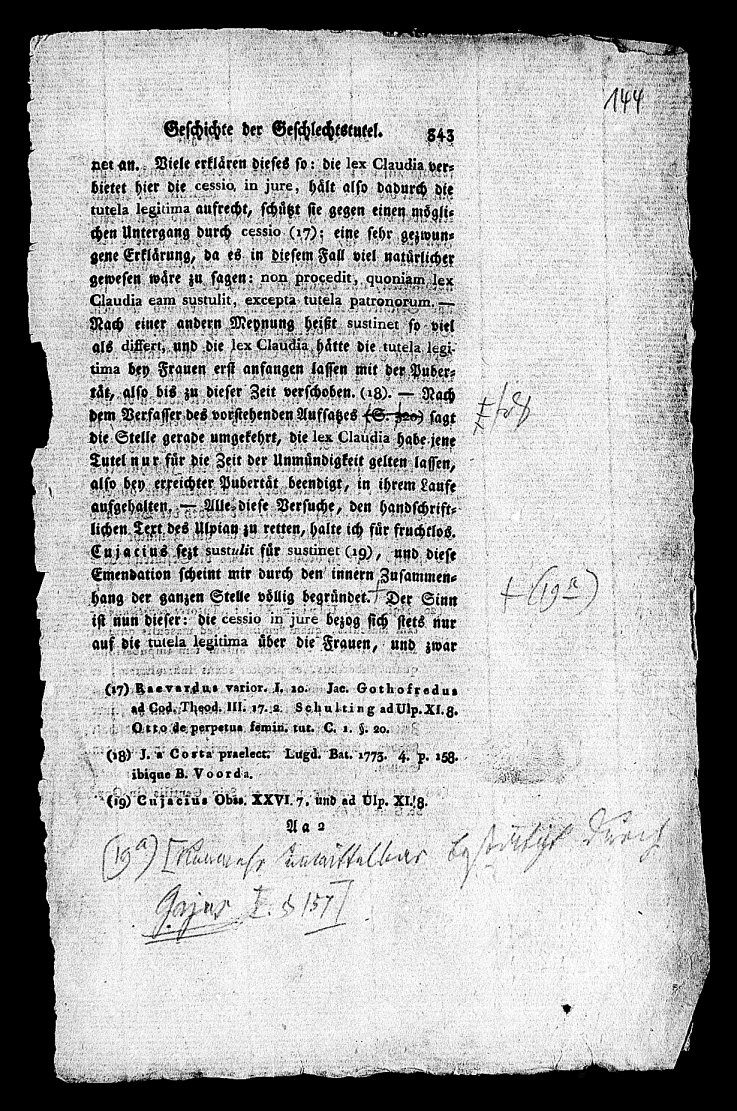 144
Geschichte der Geschlechtstutel. 343
net an. Viele erklären dieses so: die lex Claudia ver-
bietet hier die cessio in jure, hält also dadurch die
tutela legitima aufrecht, schützt sie gegen einen mögli-
chen Untergang durch cessio (17); eine sehr gezwun-
gene Erklärung, da es in diesem Fall viel natürlicher
gewesen wäre zu sagen: non procedit, quoniam lex
Claudia eam sustulit, excepta tutela patronorum. —
Nach einer andern Meynung heißt sustinet so viel
als differt, und die lex Claudia hätte die tutela legi-
tima bey Frauen erst anfangen lassen mit der Puber-
tät, also bis zu dieser Zeit verschoben. (18). — Nach
dem Verfasser des vorstehenden Aufsatzes (S. 320) sagt
die Stelle gerade umgekehrt, die lex Claudia habe jene
Tutel nur für die Zeit der Unmündigkeit gelten lassen,
also bey erreichter Pubertät beendigt, in ihrem Laufe
aufgehalten. — Alle diese Versuche, den handschrift-
lichen Text des Ulpian zu retten, halte ich für fruchtlos.
Cujacius sezt sustulit für sustinet (19), und diese
Emendation scheint mir durch den innern Zusammen-
hang der ganzen Stelle völlig begründet. Der Sinn
+ (19a)
ist nun dieser: die cessio in jure bezog sich stets nur
auf die tutela legitima über die Frauen, und zwar
(17) Raevardus varior. I. 10. Jac. Gothofredus
ad Cod. Theod. III. 17. 2. Schulting ad Ulp. XI. 8.
Otto de perpetua femin. tut. C. 1. §. 20.
(18) J. a Costa praelect. Lugd. Bat. 1773. 4. p. 158.
ibique B. Voorda.
(19) Cujacius Obss. XXVI. 7. und ad Ulp. XI. 8.
Aa 2
(19a) [Nunmehr unmittelbar bestätigt durch
Gajus I. § 157]